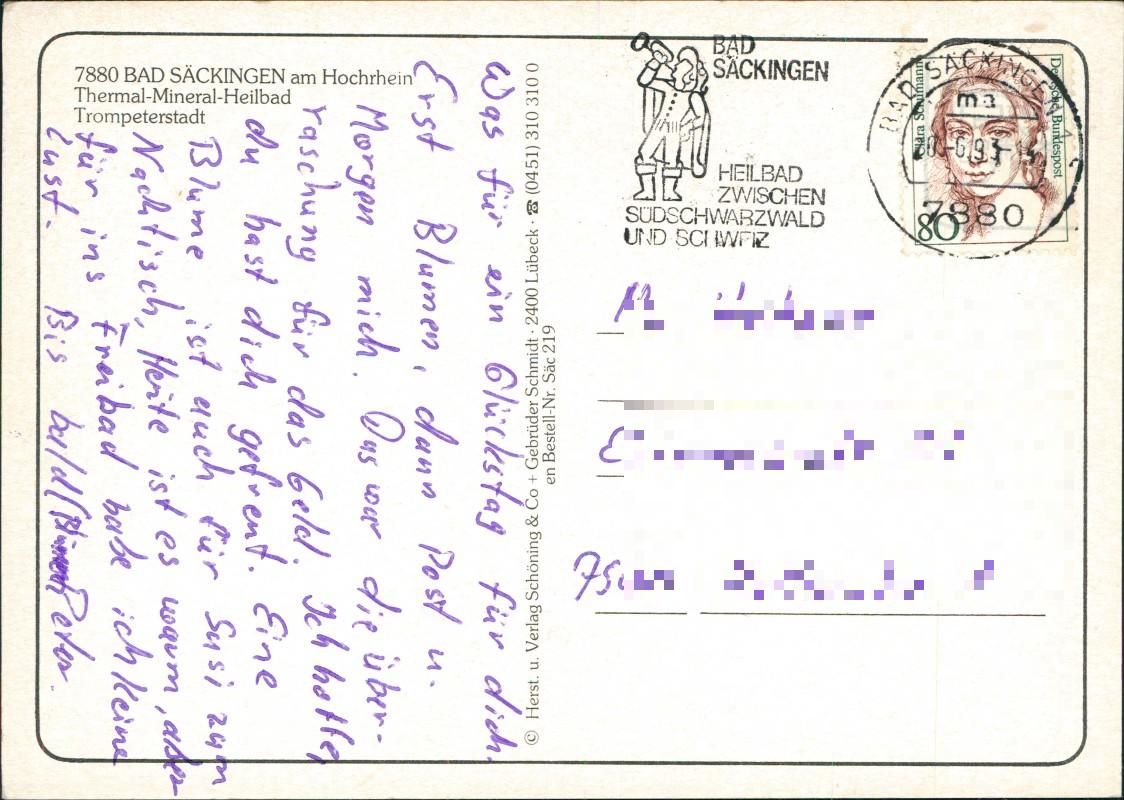 7880 BAD SÄCKINGEN am Hochrhein
Thermal-Mineral-Heilbad
Trompeterstadt
Was für ein Glückstag für dich.
Erst Blumen, dann Post u.
Morgen mich. Das war die über-
raschung für das Geld. Ich hoffe,
du hast dich gefreut. Eine
Blume ist auch für Susi zum
Nachtisch. Heute ist es warm, aber
für ins Freibad habe ich keine
Lust. Bis bald Peter.
© Herst. u. Verlag Schöning & Co + Gebrüder Schmidt · 2400 Lübeck · ☎ (0451) 310 310 0
en Bestell-Nr. Säc 219
BAD
SÄCKINGEN
HEILBAD
ZWISCHEN
SÜDSCHWARZWALD
UND SCHWEIZ
BAD SÄCKINGEN 1
ma
7880
Clara Schumann
Deutsche Bundespost
80